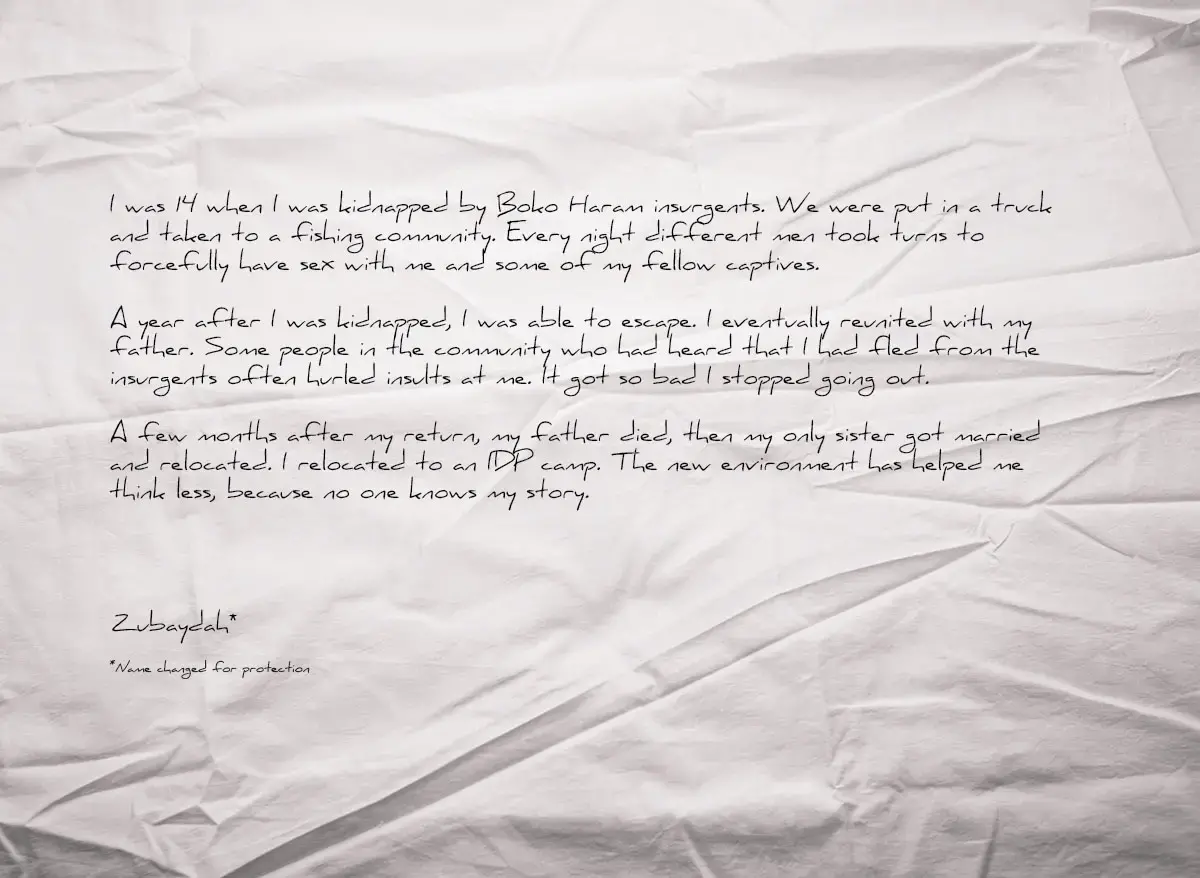 I was 14 when I was kidnapped by Boko Haram insurgents. We were put in a truck
and taken to a fishing community. Every night different men took turns to
forcefully have sex with me and some of my fellow captives.
A year after I was kidnapped, I was able to escape. I eventually reunited with my
father. Some people in the community who had heard that I had fled from the
insurgents often hurled insults at me. It got so bad I stopped going out.
A few months after my return, my father died, then my only sister got married
and relocated. I relocated to an IDP camp. The new environment has helped me
think less, because no one knows my story.
Zubaydah*
*Name changed for protection